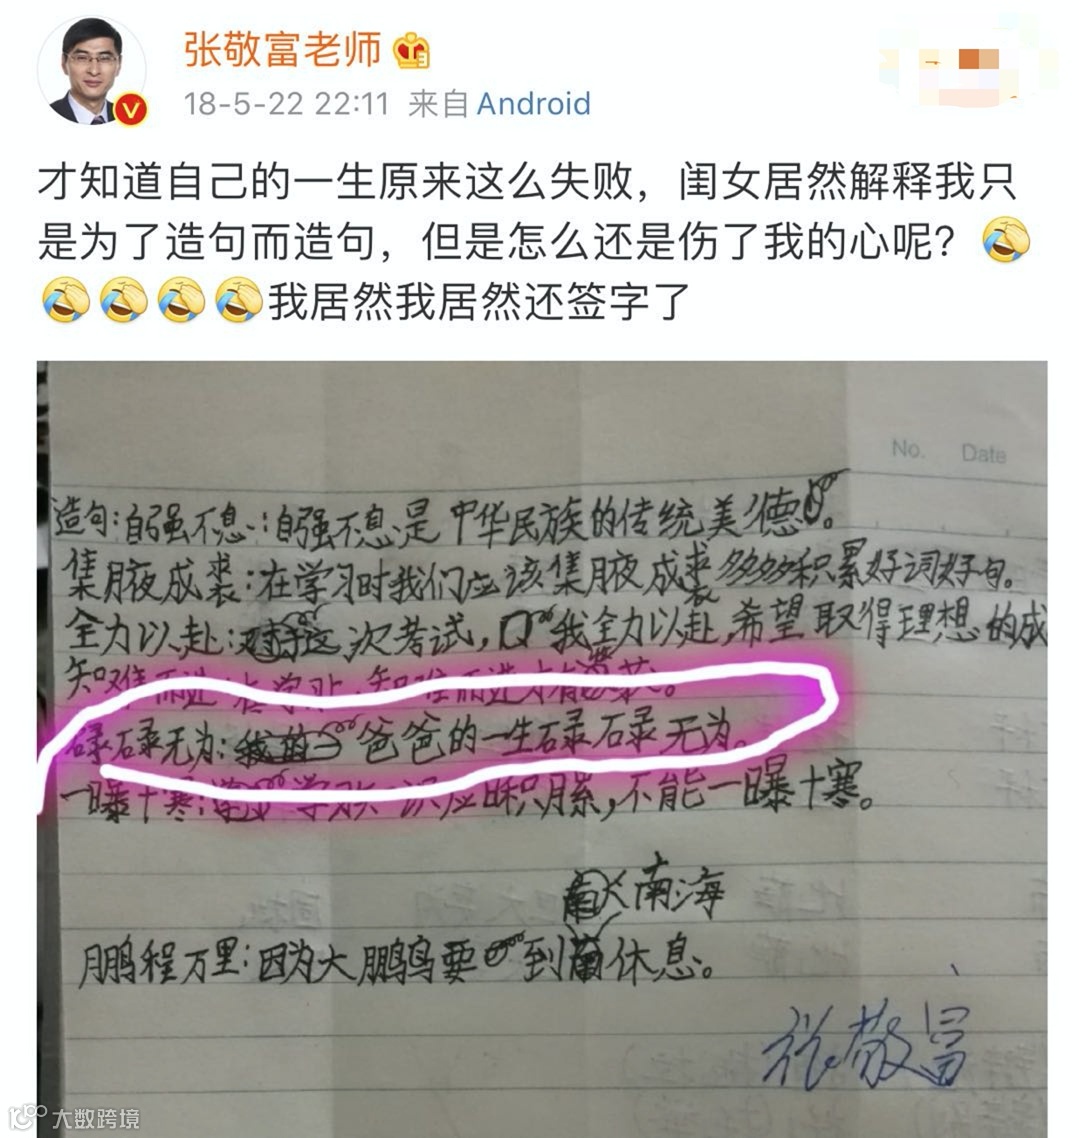 张敬富老师
18-5-22 22:11 来自 Android
才知道自己的一生原来这么失败，闺女居然解释我只
是为了造句而造句，但是怎么还是伤了我的心呢？
我居然我居然还签字了
No. Date
造句：自强不息：自强不息是中华民族的传统美德。
集腋成裘：在学习时我们应该集腋成裘多多积累好词好句。
全力以赴：这次考试，我全力以赴，希望取得理想的成
知难而进：在学习上，知难而进才能
碌碌无为：爸爸的一生碌碌无为。
一曝十寒：学习应日积月累，不能一曝十寒。
南海
鹏程万里：因为大鹏鸟要到休息。
张敬富
大数跨境